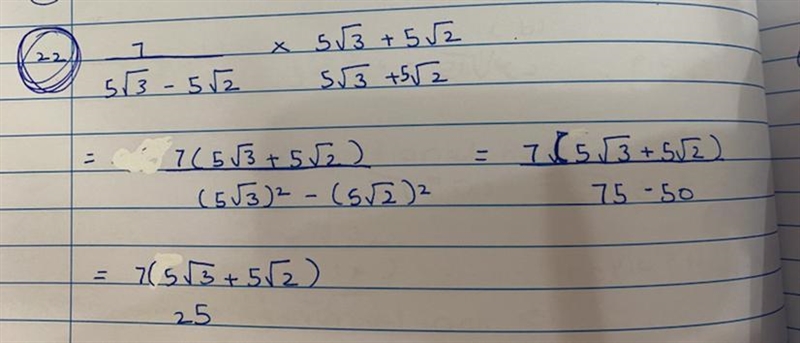 22 7 × 5√3 + 5√2
5√3 - 5√2 5√3 +5√2
= 7(5√3 + 5√2) = 7(5√3 + 5√2)
(5√3)² - (5√2)² 75 - 50
= 7(5√3 + 5√2)
25